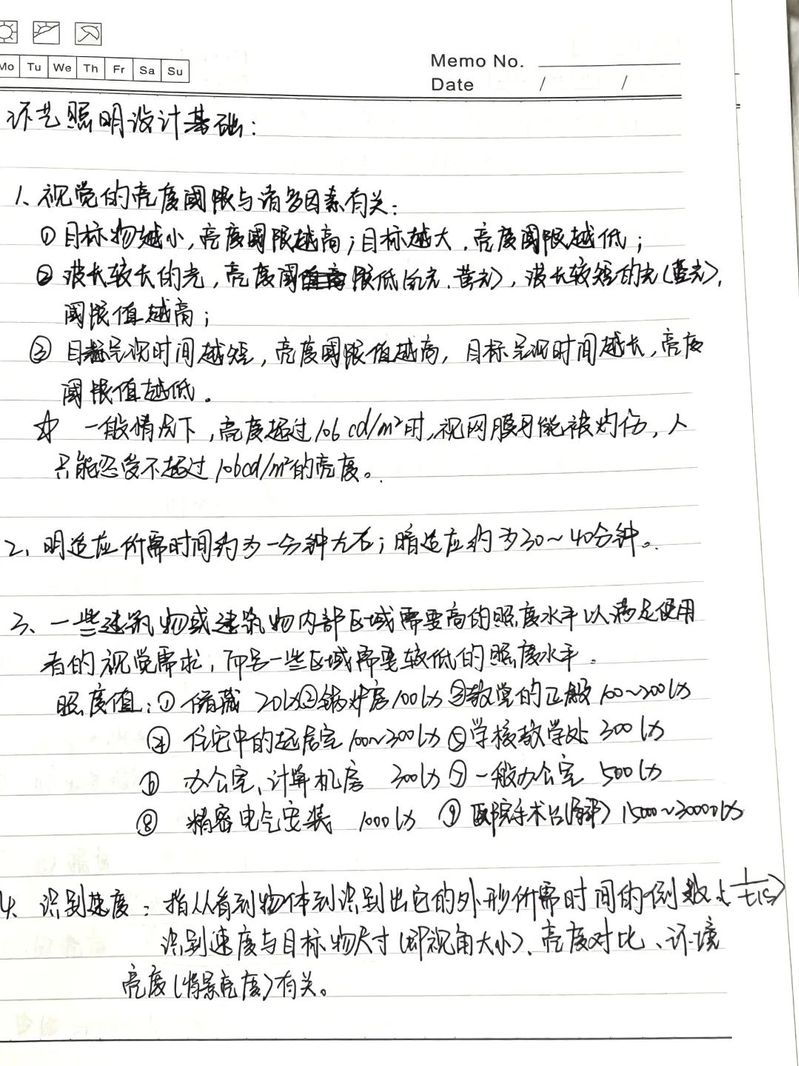 Mo Tu We Th Fr Sa Su
Memo No.
Date / /
环艺照明设计基础:
1、视觉的亮度阈限与诸多因素有关:
①目标物越小,亮度阈限越高;目标越大,亮度阈限越低;
②波长较长的光,亮度阈限低(红光、黄光),波长较短的光(蓝光),
阈限值越高;
③目标呈现时间越短,亮度阈限值越高,目标呈现时间越长,亮度
阈限值越低。
☆ 一般情况下,亮度超过106 cd/m²时,视网膜可能被灼伤,人
只能忍受不超过106cd/m²的亮度。
2、明适应所需时间约为一分钟左右;暗适应约为30~40分钟。
3、一些建筑物或建筑物内部区域需要高的照度水平以满足使用
者的视觉需求,而另一些区域需要较低的照度水平。
照度值:①储藏 20lx②锅炉房100lx③教堂的正殿100~200lx
④住宅中的起居室100~300lx⑤学校教学处 300lx
⑥ 办公室、计算机房 300lx⑦一般办公室 500lx
⑧ 精密电气安装 1000lx ⑨医院手术台 15000~30000lx
4、识别速度:指从看到物体到识别出它的外形所需时间的倒数
识别速度与目标物尺寸(即视角大小)、亮度对比、环境
亮度(背景亮度)有关。